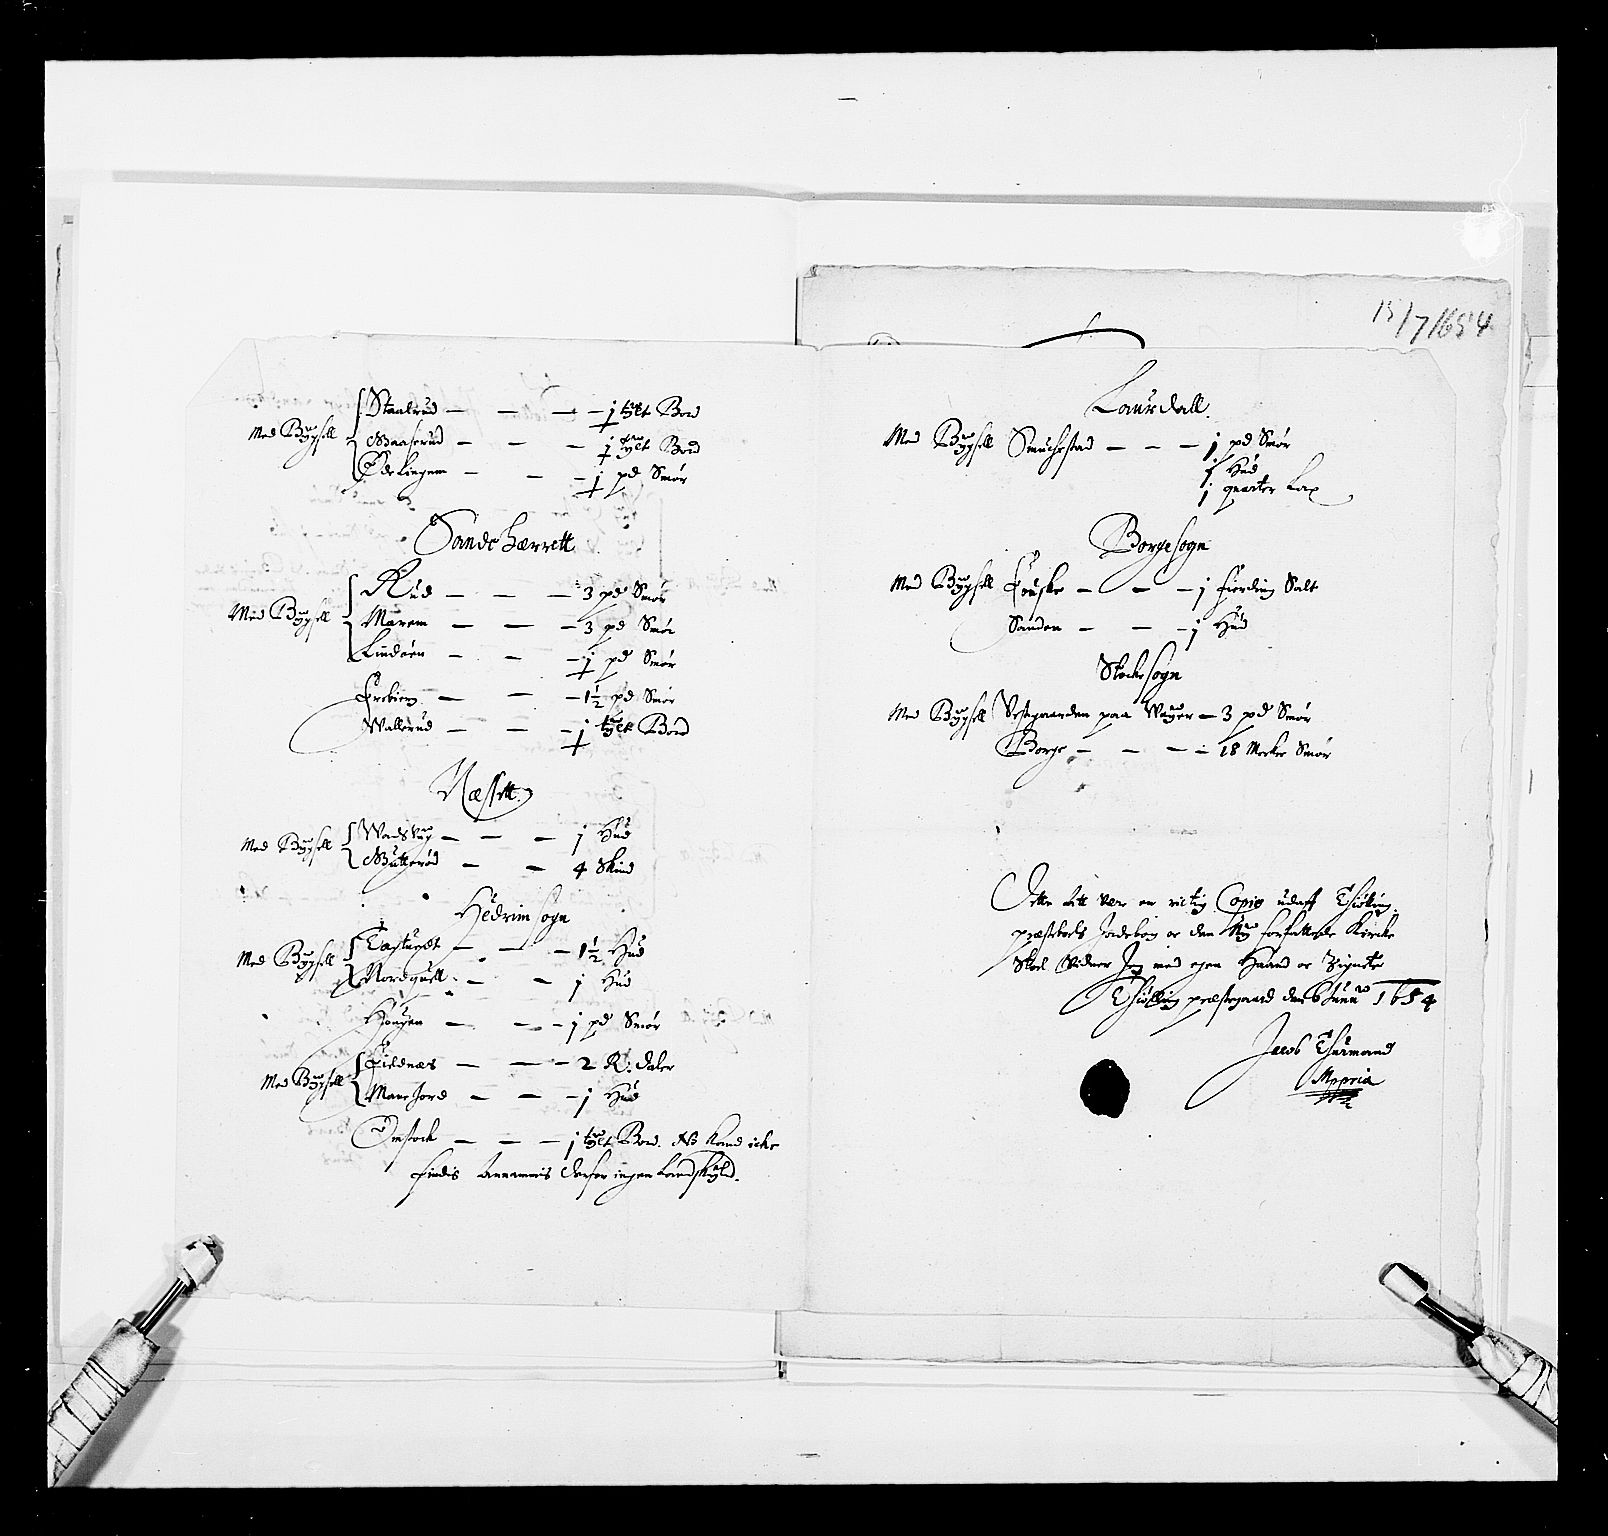 Med Bygsell
Staalrud — — — 1 tylt Bord
Gaaserud — — — 1 tylt Bord
Ødelingen — — — 1 pd Smør
Sande Hærrett
Med Bygsell
Rud — — — 3 pd Smør
Marem — — — 3 pd Smør
Lindøen — — — 1 pd Smør
Frebierg — — — 1½ pd Smør
Wallerud — — — 1 tylt Bord
Næssett
Med Bygsell
Wadskug — — — 1 Hud
Butterød — — 4 Skind
Hedrim sogn
Med Bygsell
Tastuedt — — — 1½ Hud
Nordquell — — 1 Hud
Hougen — — — 1 pd Smør
Med Bygsell
Fieldnæs — — — 2 R. daler
Mare Jord — — — 1 Hud
Omstock — — — 1 tylt Bord. NB Kand icke
findis Annammis derfor ingen Landskyld.
15/7 1654
Laurdall
Med Bygsell Smuchestad — — — 1 pd Smør
1 Hud
1 quarter Lax
Borgesogn
Med Bygsell Fouske — — — 1 fierding Salt
Sanden — — — 1 Hud
Stockesogn
Med Bygsell Vestgaarden paa Wøyer — 3 pd Smør
Borge — — — 18 Merker Smør
Dette att være en rictig Copie udaff Thiølling
præstebols Jordebog or den Ny forfattede Kircke
Stoel Vidner Jeg med egen Haand or Zignete
Thiølling præstegaard den 6 Junii Ao 1654
Jacob Thurmand
Mppria